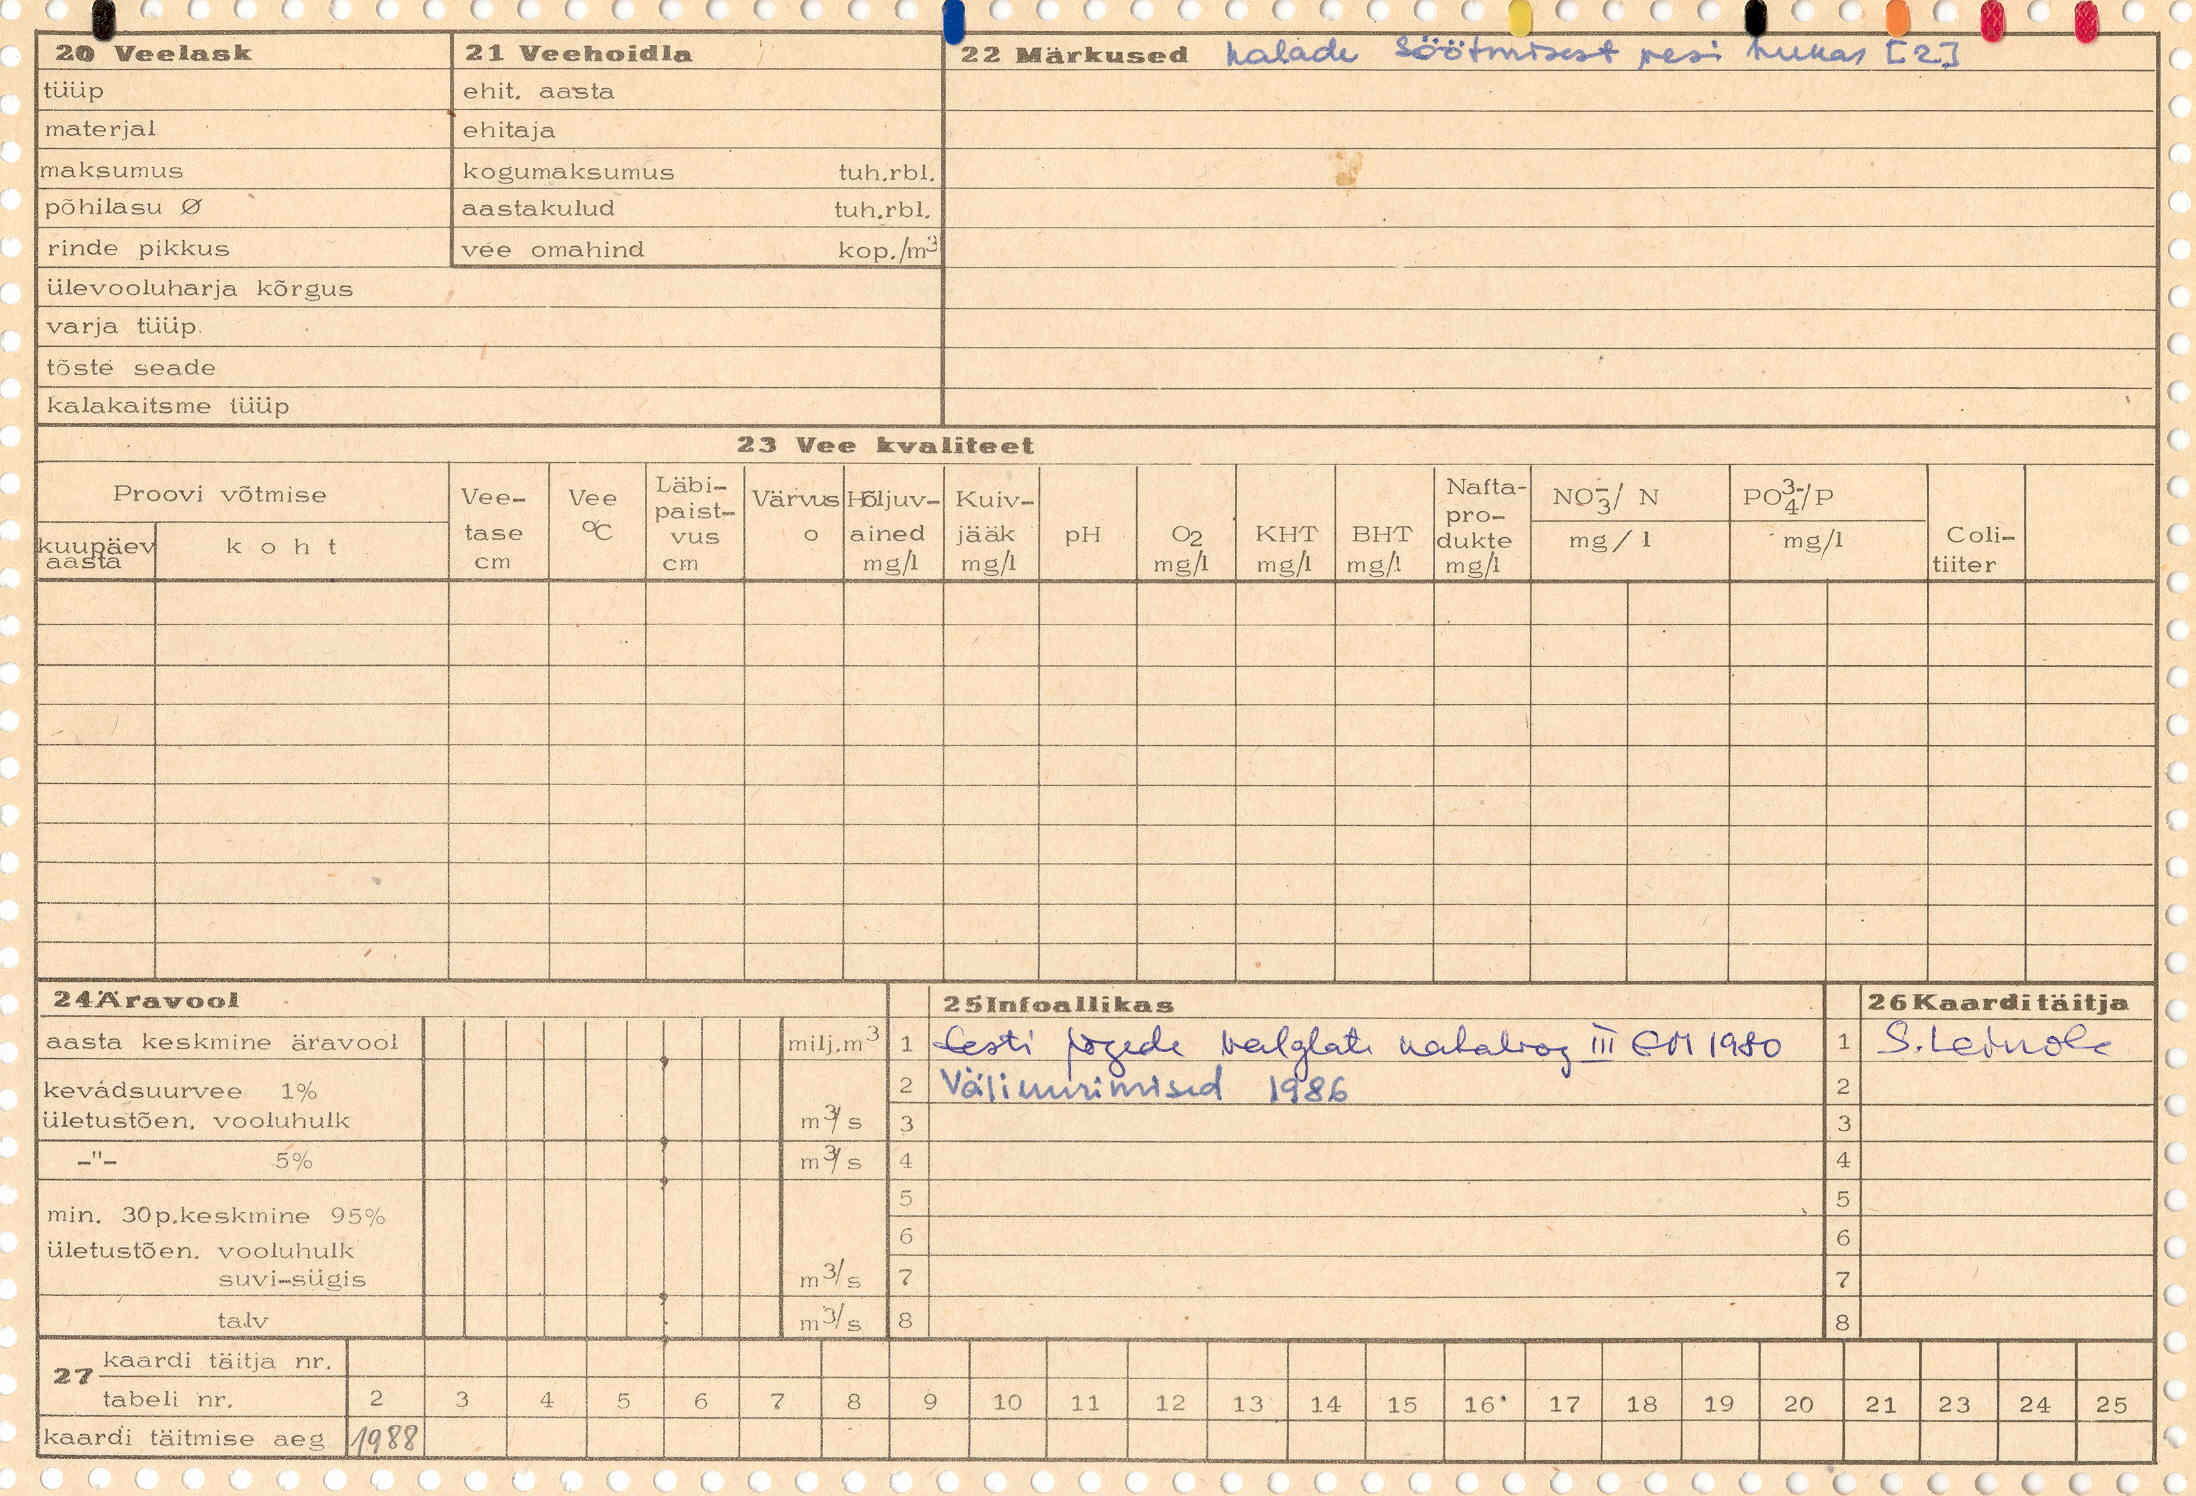 20 Veelask
21 Veehoidla
22 Märkused kalade söötmisest vesi hukas [2]
tüüp
ehit. aasta
materjal
ehitaja
maksumus
kogumaksumus tuh.rbl.
põhilasu Ø
aastakulud tuh.rbl.
rinde pikkus
vee omahind kop./m³
ülevooluharja kõrgus
varja tüüp
tõste seade
kalakaitsme tüüp
23 Vee kvaliteet
Proovi võtmise
kuupäev aasta
koht
Vee-tase cm
Vee °C
Läbi-paist-vus cm
Värvus o
Hõljuv-ained mg/l
Kuiv-jääk mg/l
pH
O₂ mg/l
KHT mg/l
BHT mg/l
Nafta-pro-dukte mg/l
NO₃⁻/ N mg/l
PO₄³⁻/P mg/l
Coli-tiiter
24 Äravool
aasta keskmine äravool milj.m³
kevadsuurvee 1%
ületustõen. vooluhulk m³/s
-"- 5% m³/s
min. 30p.keskmine 95%
ületustõen. vooluhulk
suvi-sügis m³/s
talv m³/s
25 Infoallikas
1 Eesti jõgede valglate kataloog III EM 1980
2 Väliuurimised 1986
3
4
5
6
7
8
26 Kaardi täitja
1
2
3
4
5
6
7
8
27 kaardi täitja nr.
tabeli nr. 2 3 4 5 6 7 8 9 10 11 12 13 14 15 16 17 18 19 20 21 23 24 25
kaardi täitmise aeg 1988